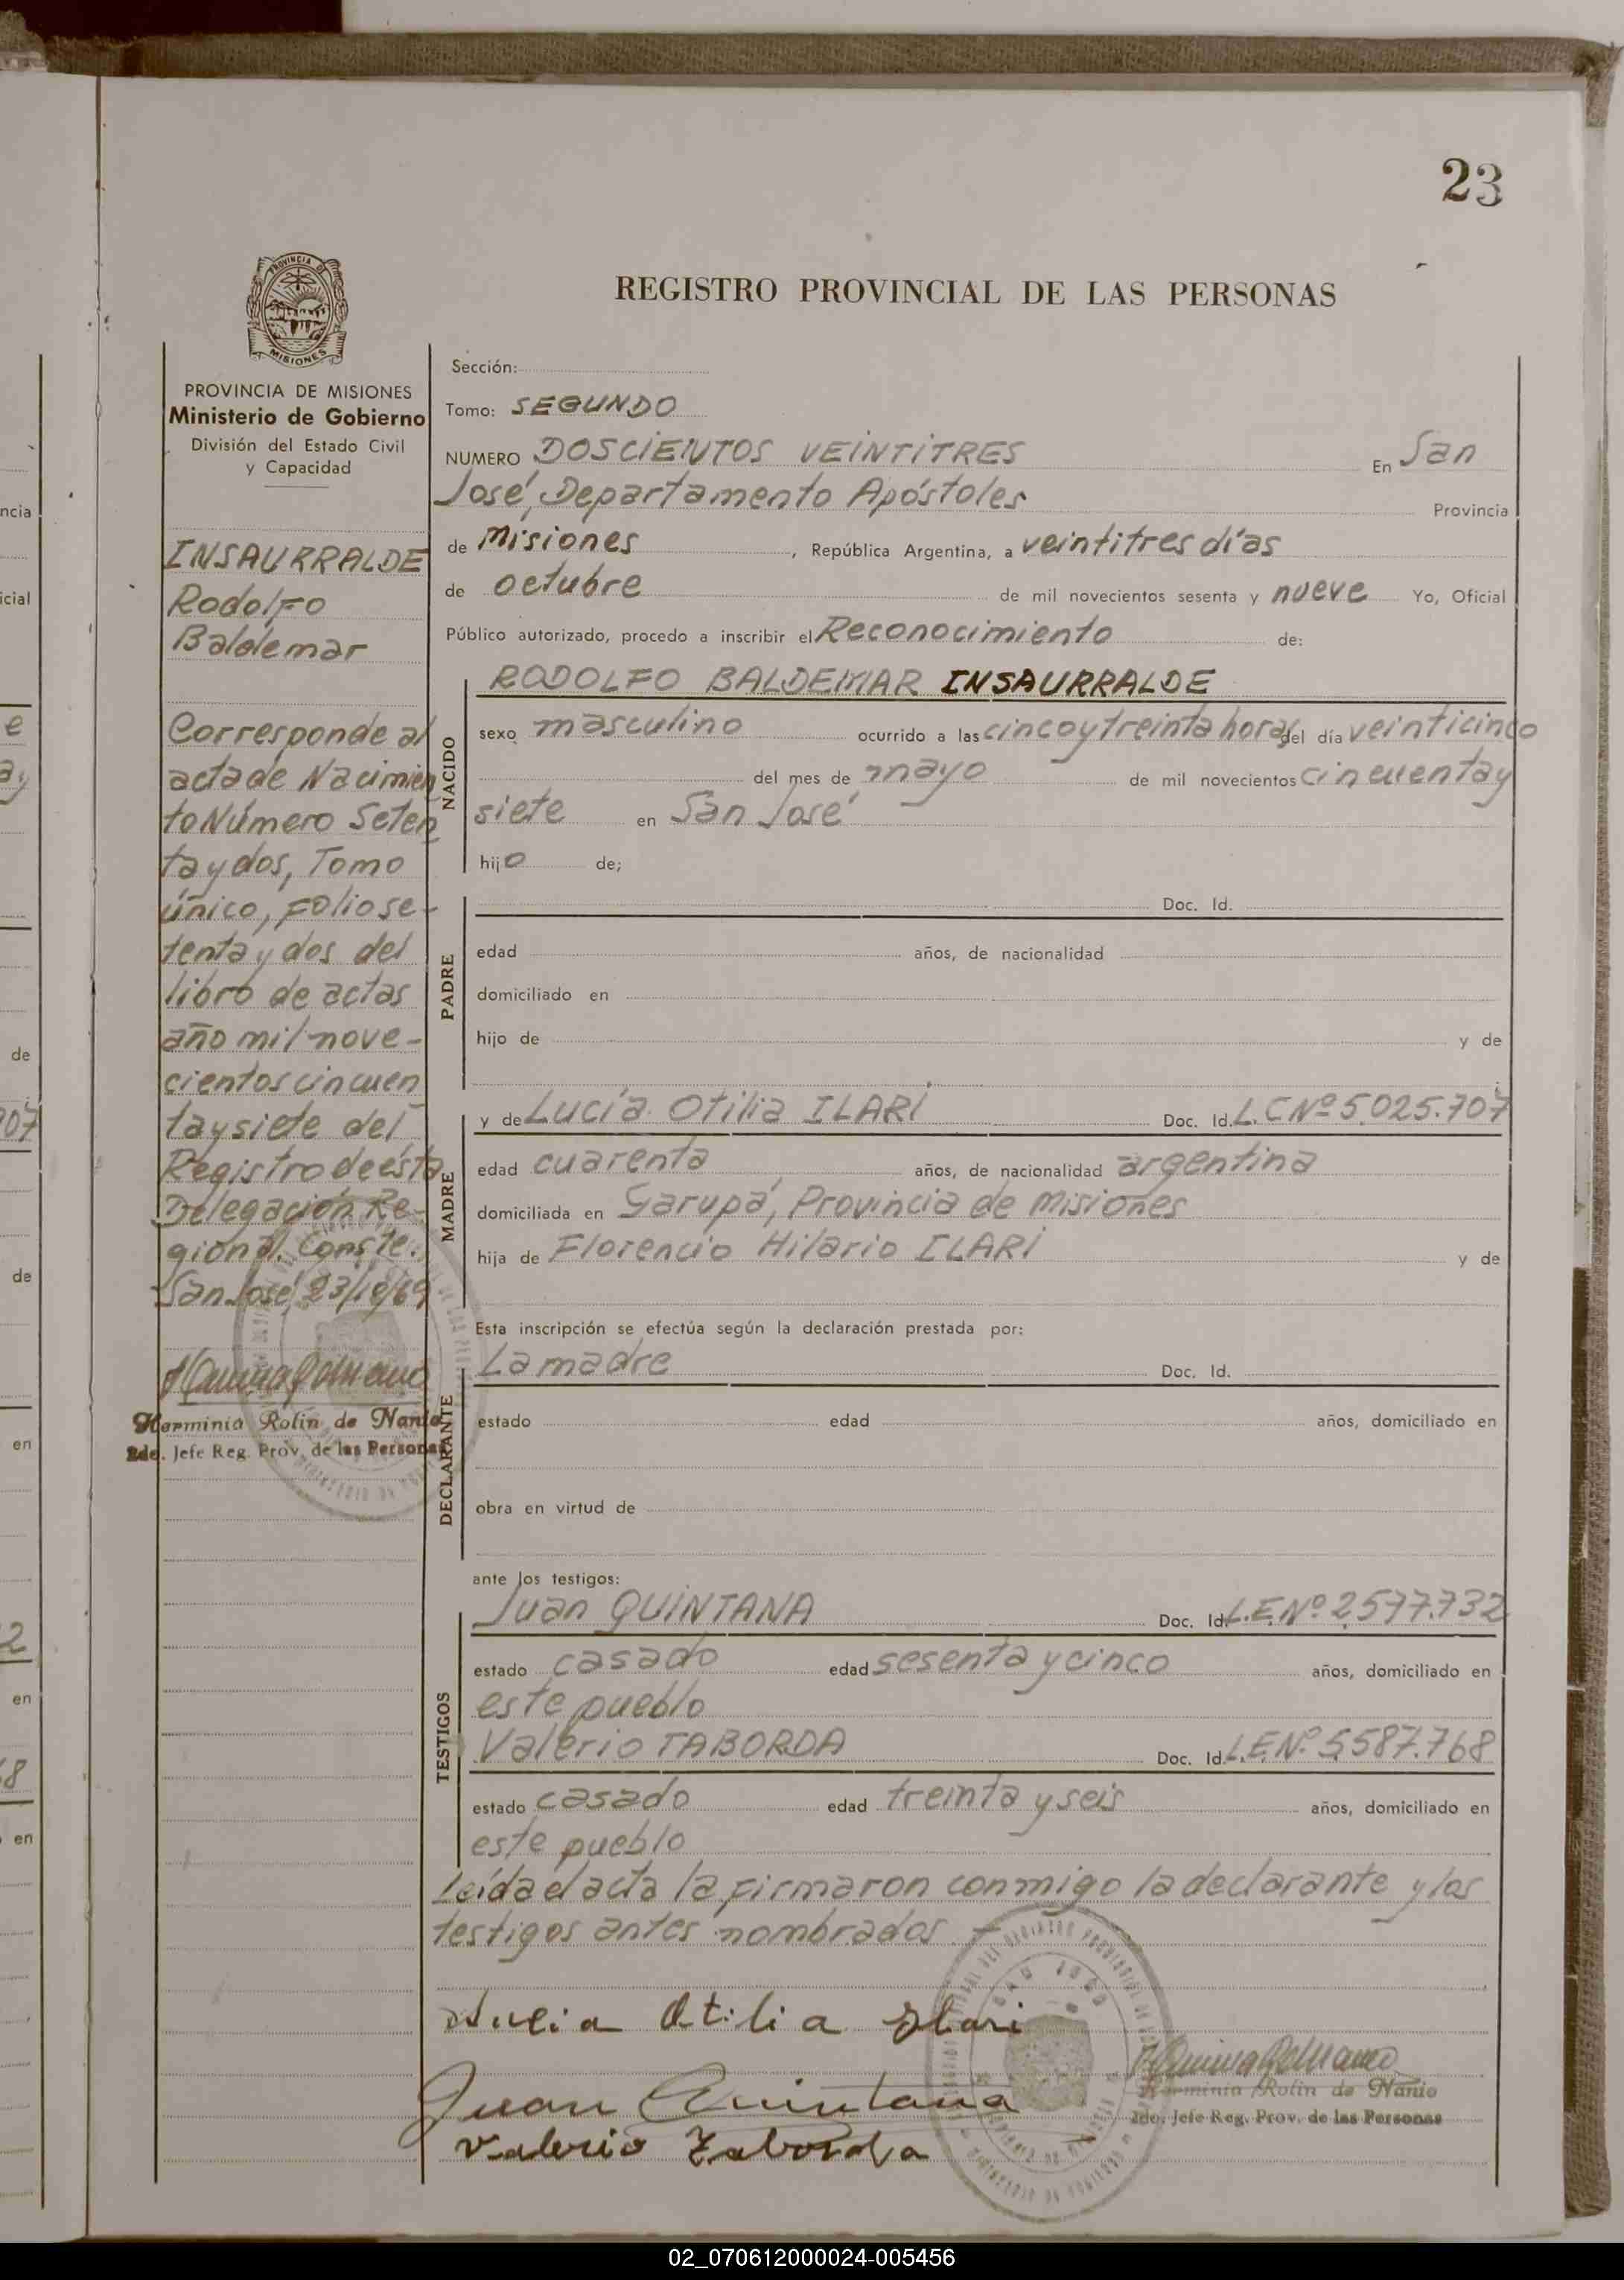 23
REGISTRO PROVINCIAL DE LAS PERSONAS
PROVINCIA DE MISIONES
Ministerio de Gobierno
División del Estado Civil
y Capacidad
INSAURRALDE
Rodolfo
Baldemar
Corresponde al
acta de Nacimien
to Número Seten
ta y dos, Tomo
único, folio se-
tenta y dos del
libro de actas
año mil nove-
cientos cincuen
ta y siete del
Registro de ésta
Delegación Re-
gional. Conste.
San José, 23/10/69
Herminia Rolin de Nanio
2do. Jefe Reg. Prov. de las Personas
Sección:
Tomo: SEGUNDO
NUMERO DOSCIENTOS VEINTITRES En San
José, Departamento Apóstoles Provincia
de Misiones, República Argentina, a veintitres días
de octubre de mil novecientos sesenta y nueve Yo, Oficial
Público autorizado, procedo a inscribir el Reconocimiento de:
NACIDO
RODOLFO BALDEMAR INSAURRALDE
sexo masculino ocurrido a las cinco y treinta horas del día veinticinco
del mes de mayo de mil novecientos cincuenta y
siete en San José
hijo de;
PADRE
Doc. Id.
edad años, de nacionalidad
domiciliado en
hijo de y de
MADRE
y de Lucía Otilia ILARI Doc. Id. L.C Nº 5.025.707
edad cuarenta años, de nacionalidad argentina
domiciliada en Garupá, Provincia de Misiones
hija de Florencio Hilario ILARI y de
Esta inscripción se efectúa según la declaración prestada por:
DECLARANTE
La madre Doc. Id.
estado edad años, domiciliado en
obra en virtud de
ante los testigos:
TESTIGOS
Juan QUINTANA Doc. Id. L.E.Nº 2.577.732
estado casado edad sesenta y cinco años, domiciliado en
este pueblo
Valerio TABORDA Doc. Id. L.E.Nº 5.587.768
estado casado edad treinta y seis años, domiciliado en
este pueblo
Leída el acta la firmaron conmigo la declarante y los
testigos antes nombrados.-
Lucia Otilia Ilari
Juan Quintana
Valerio Taborda
Herminia Rolin de Nanio
2do. Jefe Reg. Prov. de las Personas
02_070612000024-005456